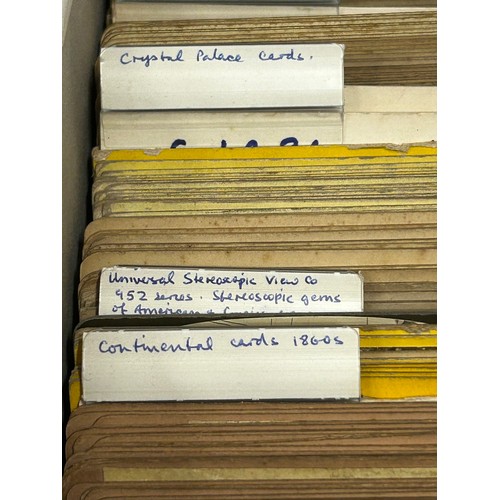 Crystal Palace cards.
Universal Stereoscopic View Co
952 series. Stereoscopic gems
of American &
Continental cards 1860s